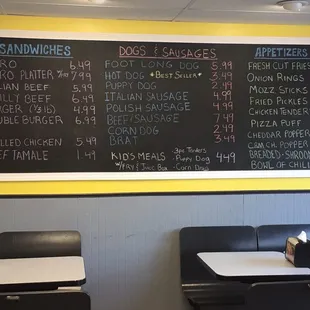 SANDWICHES
RO 6.49
RO PLATTER W/FRY 7.99
IAN BEEF 5.99
LLY BEEF 6.49
RGER (1/3 LB) 4.99
UBLE BURGER 6.99
LLED CHICKEN 5.49
EF TAMALE 1.49
DOGS & SAUSAGES
FOOT LONG DOG 5.99
HOT DOG *BEST SELLER* 3.49
PUPPY DOG 2.49
ITALIAN SAUSAGE 4.99
POLISH SAUSAGE 4.99
BEEF SAUSAGE 4.99
CORN DOG 2.49
BRAT 3.49
KIDS MEALS
W/FRY & JUICE BOX
3pc Tenders
- Puppy Dog
- Corn Dog
4.49
APPETIZERS
FRESH CUT FRIES
ONION RINGS
MOZZ STICKS
FRIED PICKLES
CHICKEN TENDER
PIZZA PUFF
CHEDDAR POPPER
CRM CH. POPPER
BREADED SHRIM
BOWL OF CHILL